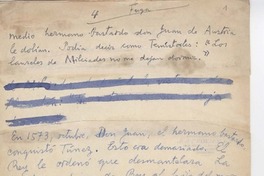 4
Fuga
medio hermano bastardo don Juan de Austria
le dolían. Podía decir como Temístocles: "Los
laureles de Milcíades no me dejan dormir."
En 1573, octubre, Don Juan, el hermano bastardo
conquistó Túnez. Esto era demasiado. El
Rey le ordenó que desmantelara La